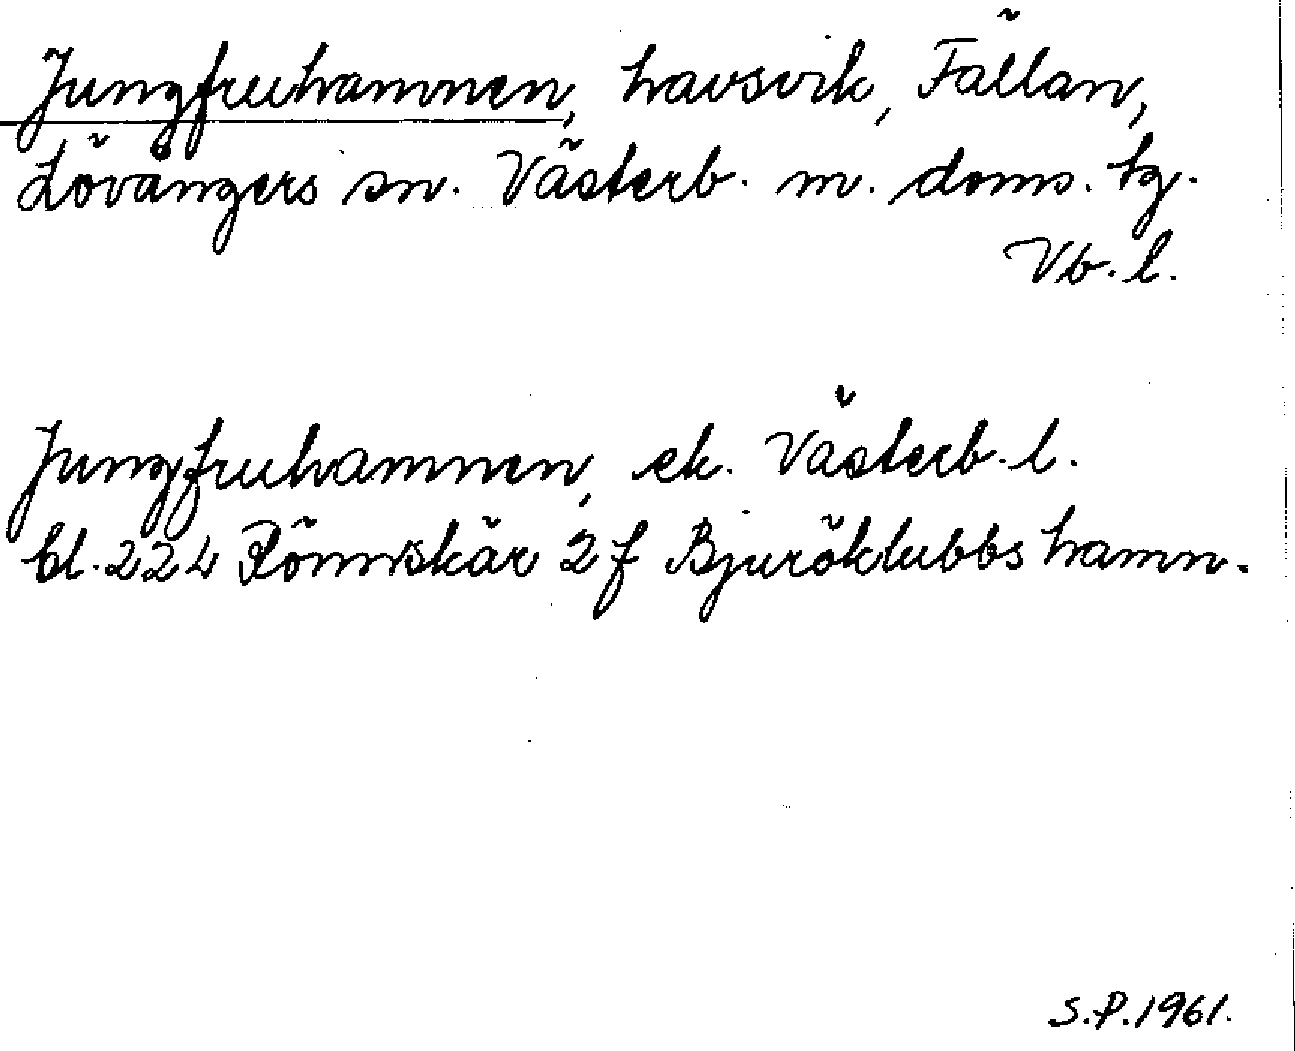 Jungfruhamnen, havsvik, Fällan,
Lövångers sn. Västerb. m. doms. tg.
Vb. l.
Jungfruhamnen, ek. Västerb. l.
bl. 224 Rönnskär 2 f Bjuröklubbs hamn.
S.P. 1961.